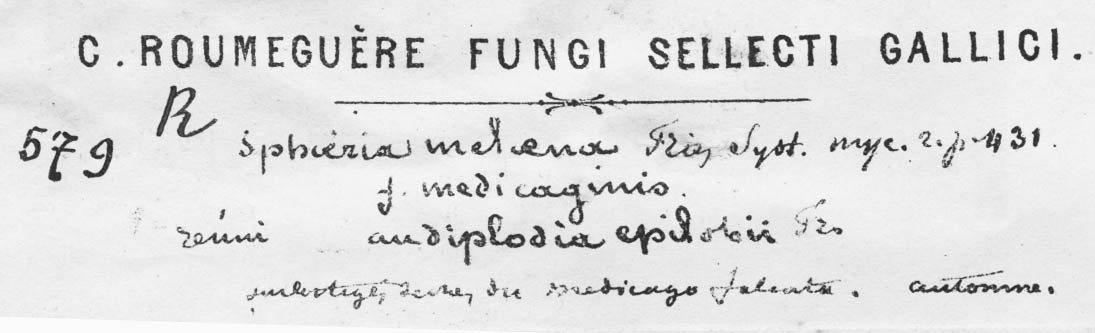 C. ROUMEGUÈRE FUNGI SELLECTI GALLICI.
R
579 Sphæria melæna Fries Syst. myc. 2. p. 431.
f. medicaginis.
réuni au diplodia epilobii Fr.
sur les tiges seches du medicago falcata. automne.